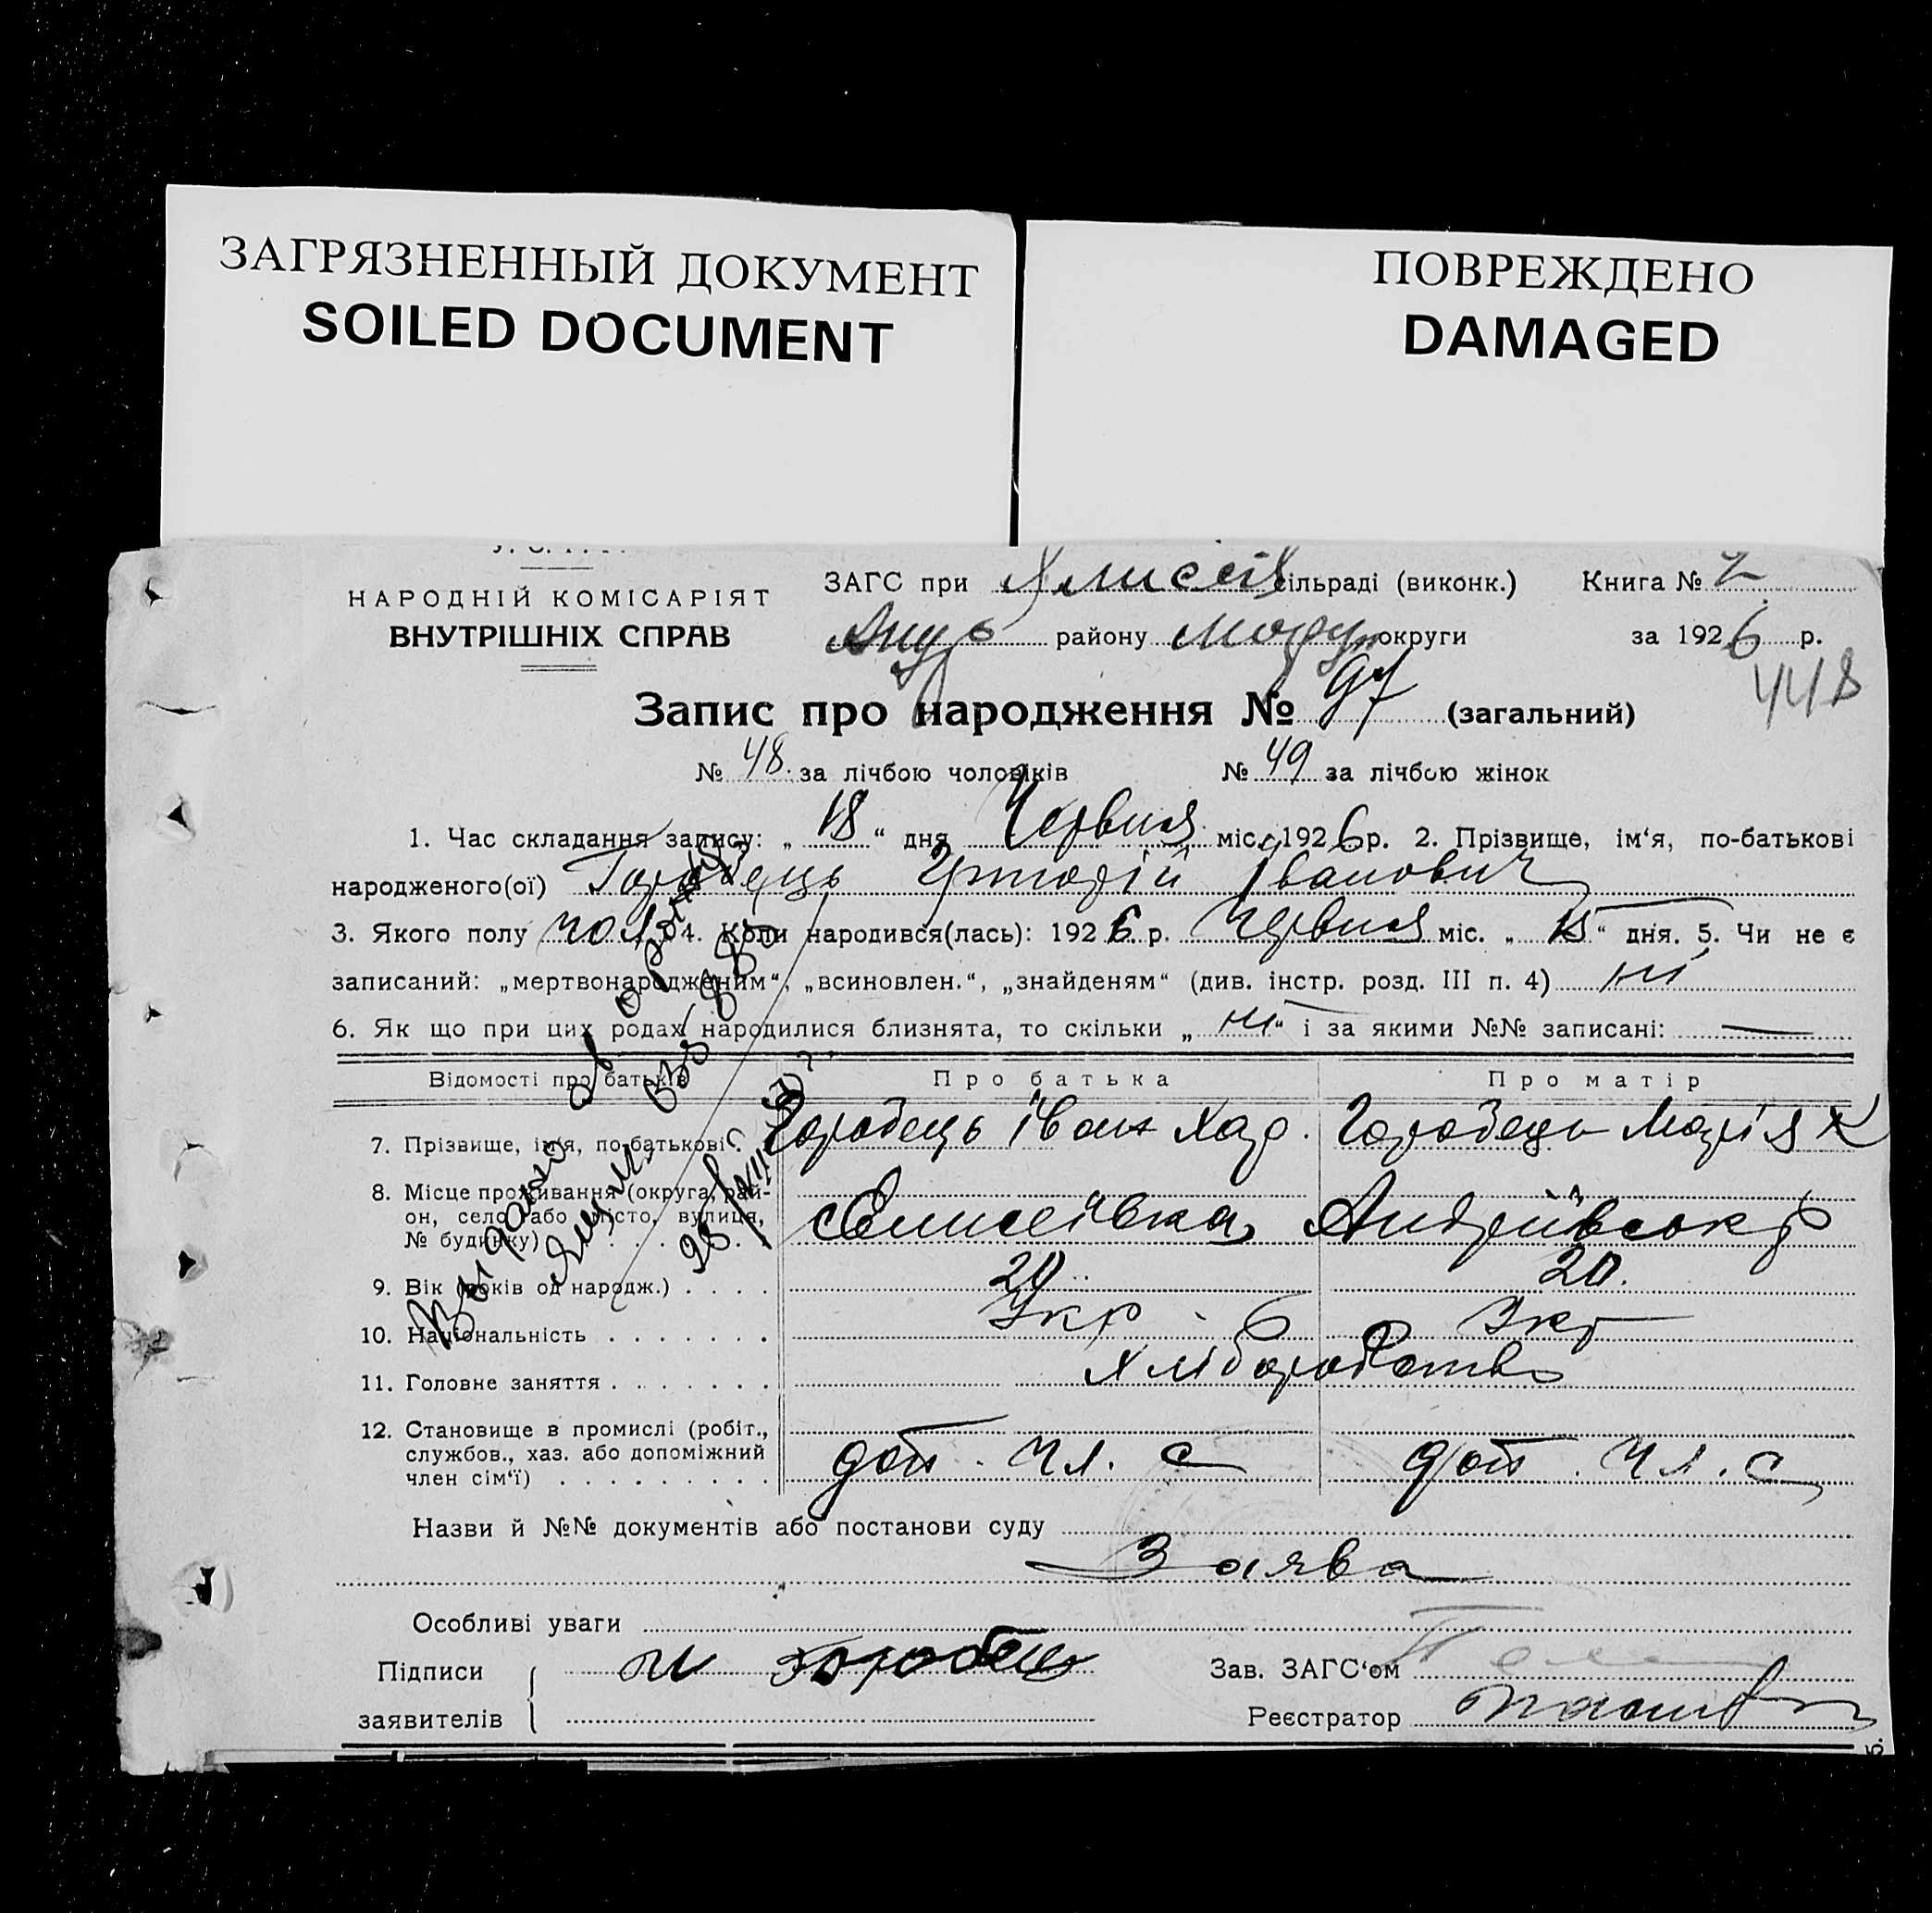 ЗАГРЯЗНЕННЫЙ ДОКУМЕНТ
SOILED DOCUMENT
ПОВРЕЖДЕНО
DAMAGED
НАРОДНІЙ КОМІСАРІЯТ
ВНУТРІШНІХ СПРАВ
ЗАГС при сільраді (виконк.) Книга № 2
району округи за 1926 р.
448
Запис про народження № 97 (загальний)
№ 48 за лічбою чоловіків № 49 за лічбою жінок
1. Час складання запису: „ 18 “ дня Червня міс. 1926 р. 2. Прізвище, ім‘я, по-батькові
народженого(ої) Городець Григорій Іванович
3. Якого полу чол. 4. Коли народився(лась): 1926 р. Червня міс. „ 15 “ дня. 5. Чи не є
записаний: „мертвонародженим“, „всиновлен.“, „знайденям“ (див. інстр. розд. III п. 4) ні
6. Як що при цих родах народилися близнята, то скільки „ ні “ і за якими №№ записані: —
Відомості про батьків Про батька Про матір
7. Прізвище, ім‘я, по-батькові Городець Іван Хар. Городець Марія К
8. Місце проживання (округа, рай-
он, село або місто, вулиця,
№ будинку) Єлисеївка, Андріївськ
9. Вік (років од народж.) 20 20.
10. Національність Укр Укр
11. Головне заняття Хліборобство
12. Становище в промислі (робіт.,
службов., хаз. або допоміжний
член сім‘ї) доп. чл. с доп. чл. с
Назви й №№ документів або постанови суду
Заява
Особливі уваги
Підписи Зав. ЗАГС‘ом
заявителів Реєстратор